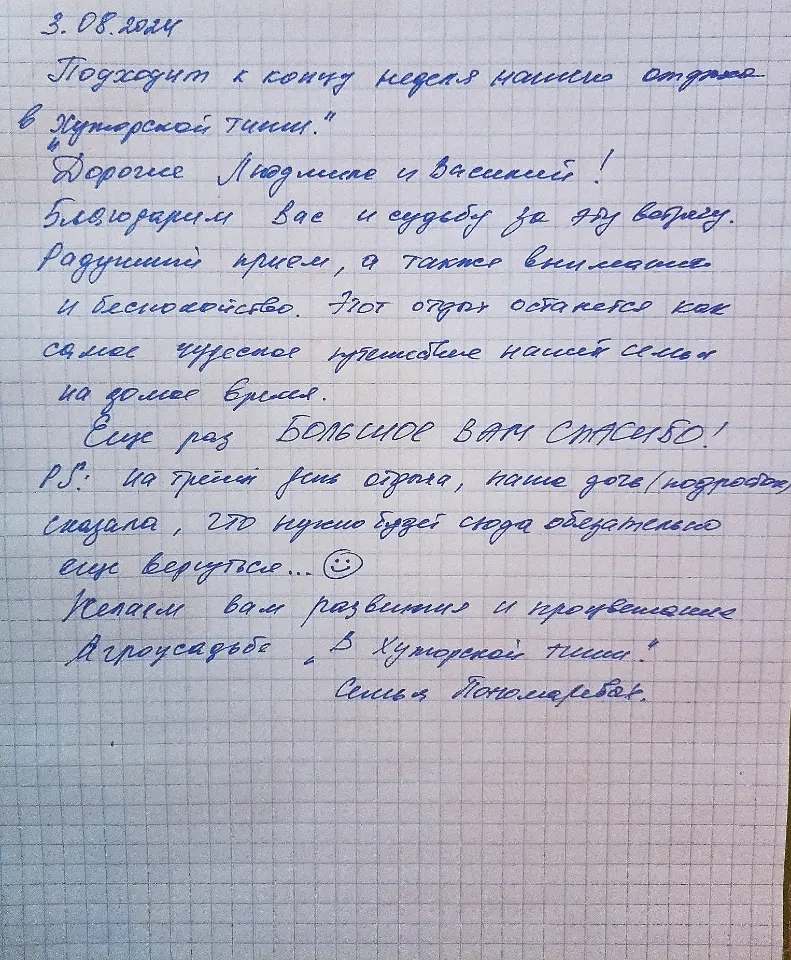 3.08.2024
Подходит к концу неделя нашего отдыха
в „Хуторской тиши."
Дорогие Людмила и Василий!
Благодарим Вас и судьбу за эту встречу.
Радушный прием, а также внимание
и беспокойство. Этот отдых останется как
самое чудесное путешествие нашей семьи
на долгое время.
Еще раз БОЛЬШОЕ ВАМ СПАСИБО!
PS: На третий день отдыха, наша дочь (подросток)
сказала, что нужно будет сюда обязательно
еще вернуться... ☺
Желаем вам развития и процветания
Агроусадьбе „В Хуторской тиши."
Семья Пономаревых.